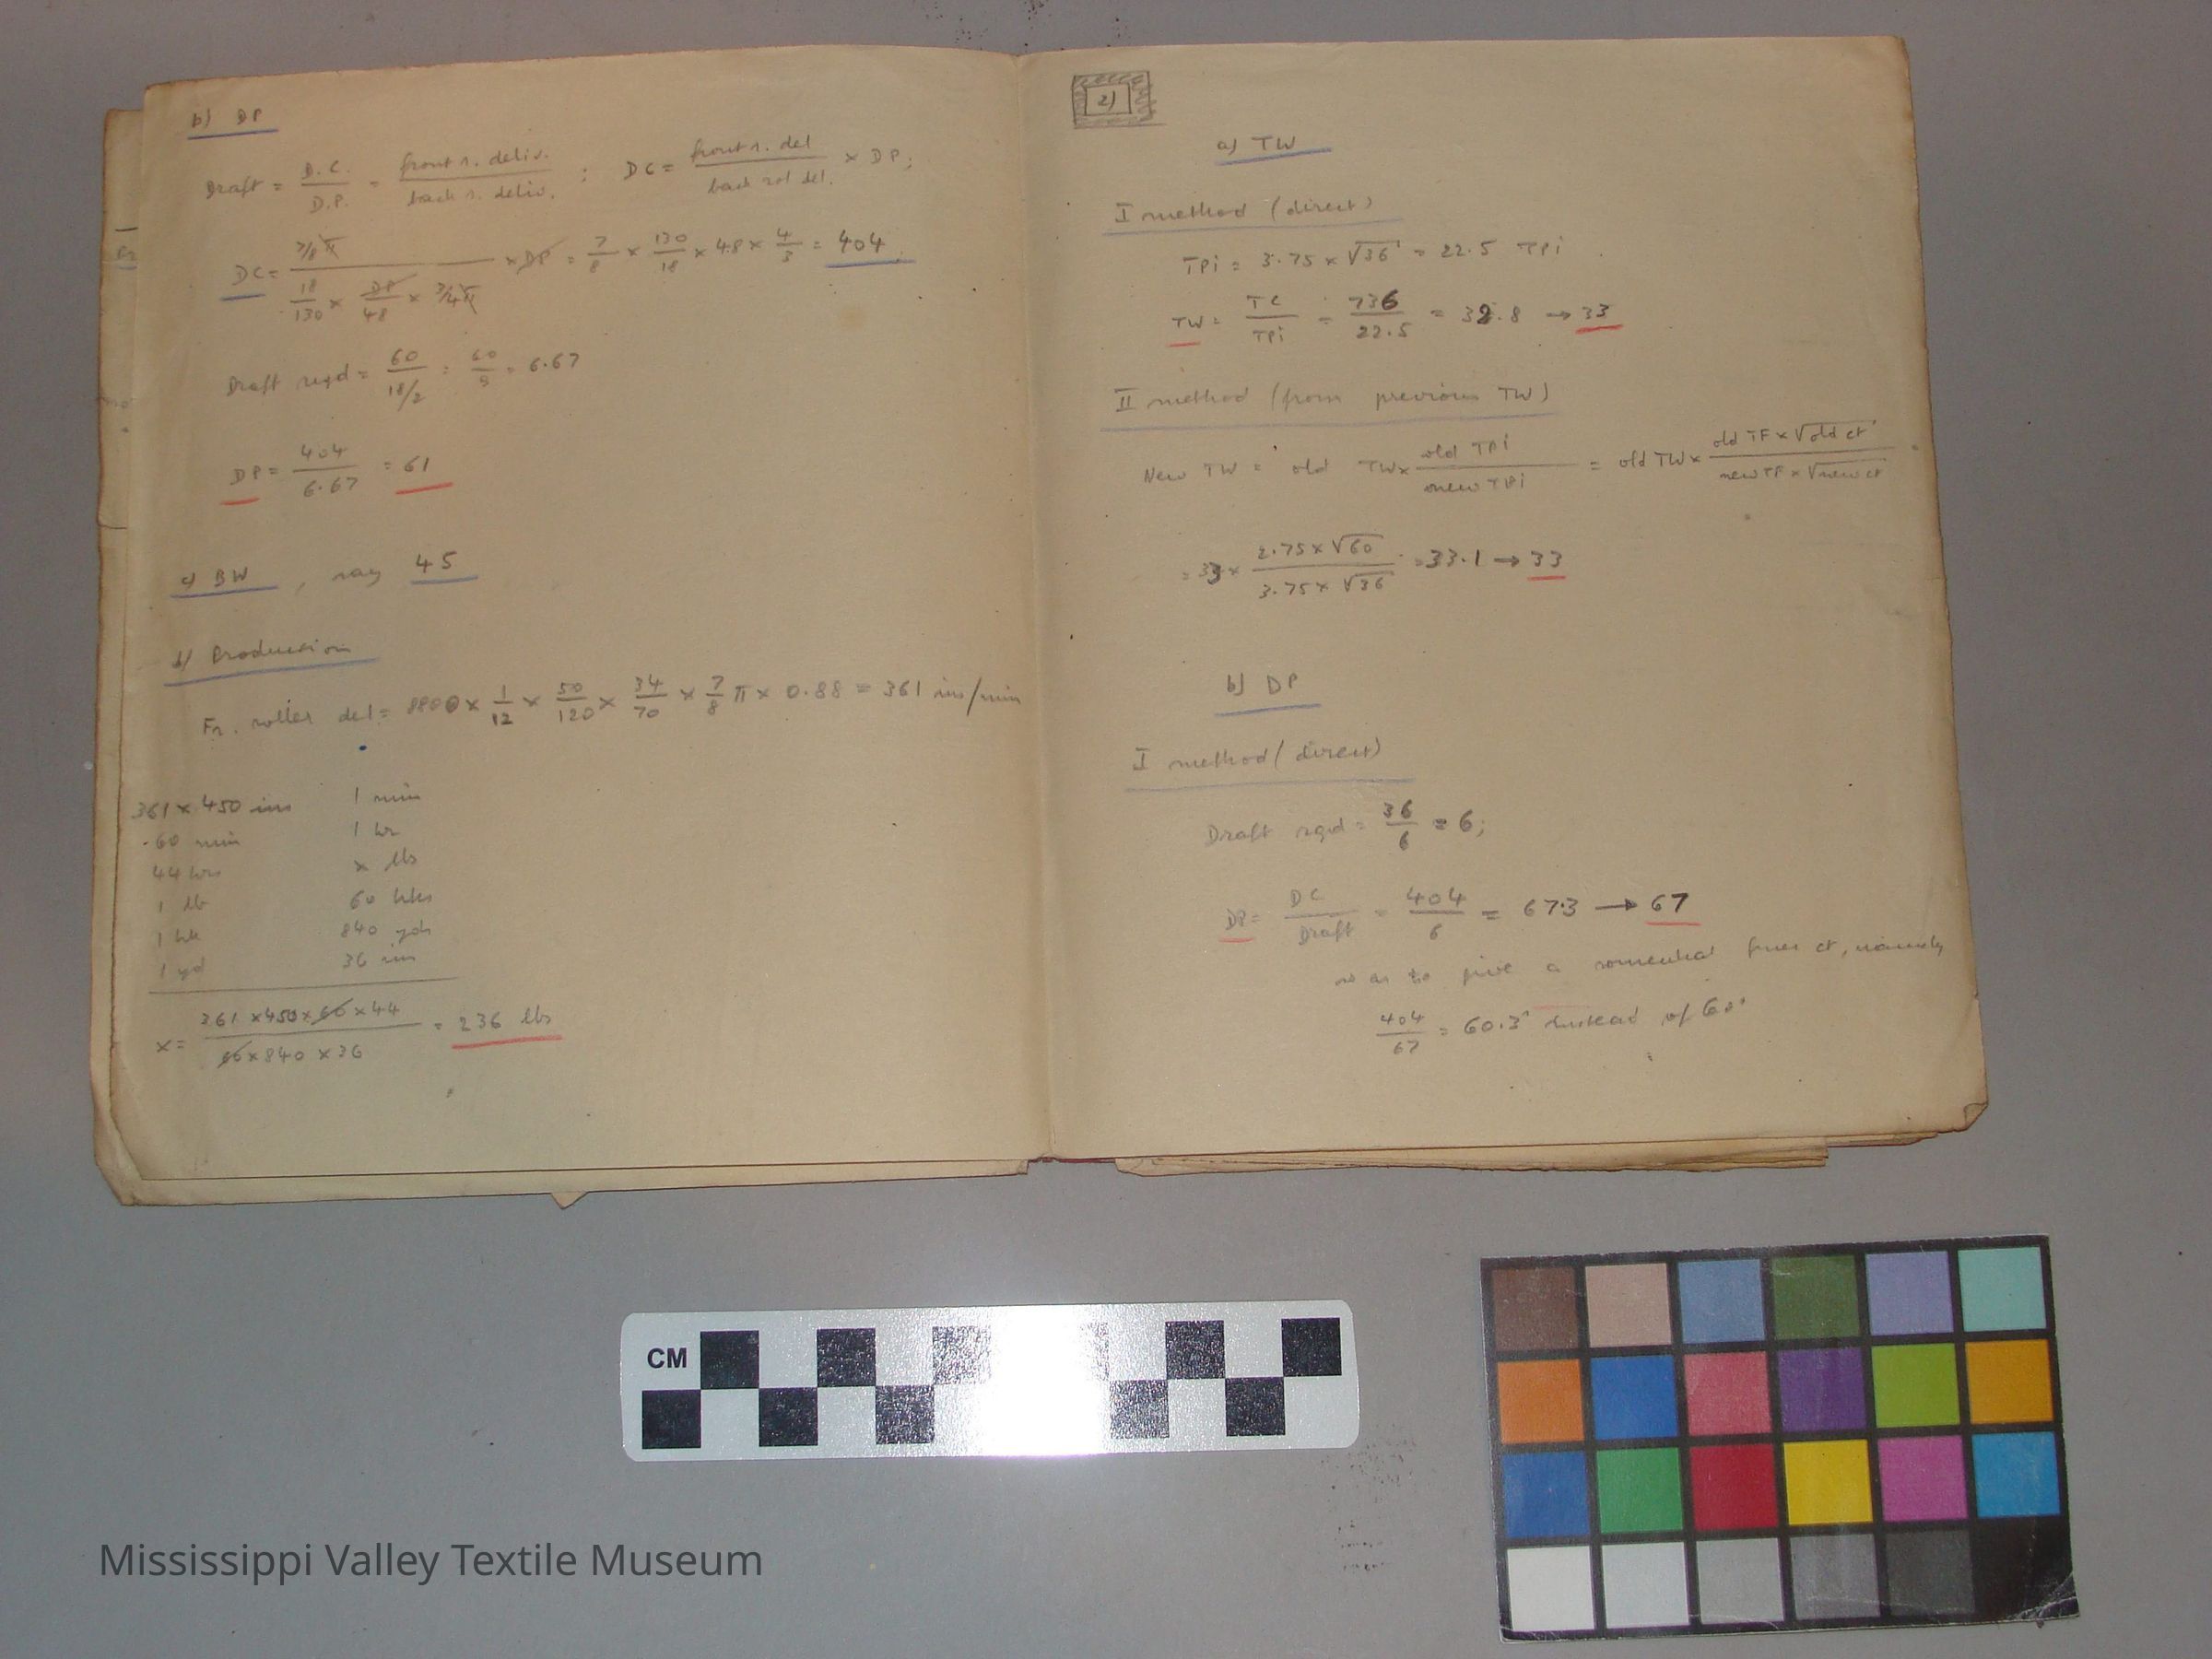 b) DP
Draft = D.C. / D.P. = front r. deliv. / back r. deliv. ; DC = front r. del / back rol del. × DP;
DC = 7/8 π / 18/130 × DP/48 × 3/4 π × DP = 7/8 × 130/18 × 48 × 4/3 = 404.
Draft reqd = 60 / 18/2 = 60/9 = 6.67
DP = 404 / 6.67 = 61
c) BW, say 45
d) Production
Fr. roller del = 8800 × 1/12 × 50/120 × 34/70 × 7/8 π × 0.88 = 361 ins/min
361 × 450 ins 1 min
60 min 1 hr
44 hrs x lbs
1 lb 60 hks
1 hk 840 yds
1 yd 36 ins
x = 361 × 450 × 60 × 44 / 60 × 840 × 36 = 236 lbs
2)
a) TW
I method (direct)
TPi = 3.75 × √36 = 22.5 TPi
TW = TC / TPi = 736 / 22.5 = 32.8 → 33
II method (from previous TW)
New TW = old TW × old TPi / new TPi = old TW × old TF × √old ct / new TF × √new ct
= 33 × 2.75 × √60 / 3.75 × √36 = 33.1 → 33
b) DP
I method (direct)
Draft rqd = 36/6 = 6;
DP = DC / Draft = 404 / 6 = 67.3 → 67
so as to give a somewhat finer ct, namely
404 / 67 = 60.3ˢ instead of 60ˢ
CM
Mississippi Valley Textile Museum